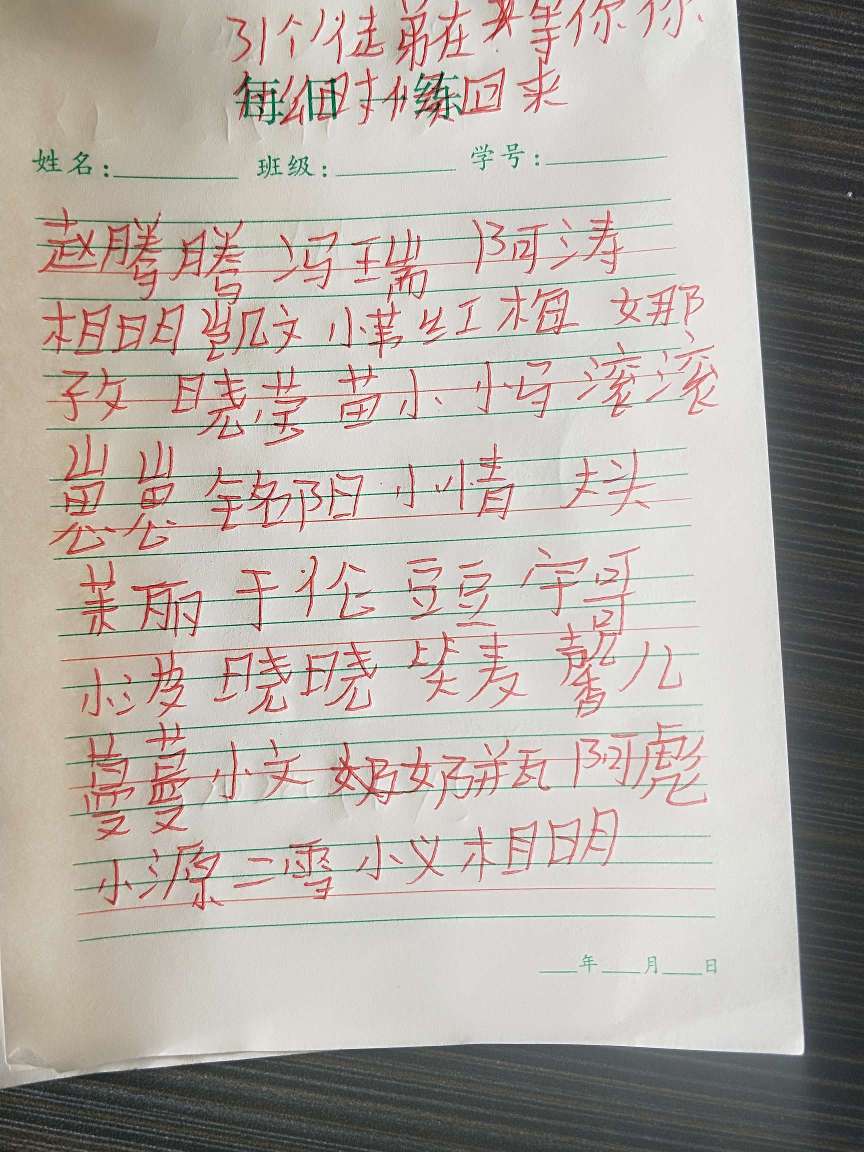 31个徒弟在等你你
每日一练回来
姓名: 班级: 学号:
赵腾腾 冯瑞 阿涛
相明 凯文 小苇 红梅 娜
孜 晓莹 苗小小 滚滚
铭阳 小情 大头
美丽 于伦 豆豆 宇哥
小波 晓晓 柴麦 馨儿
蔓蔓 小文 奶奶瓶 阿彪
小源 二雪 小义 相明
年 月 日